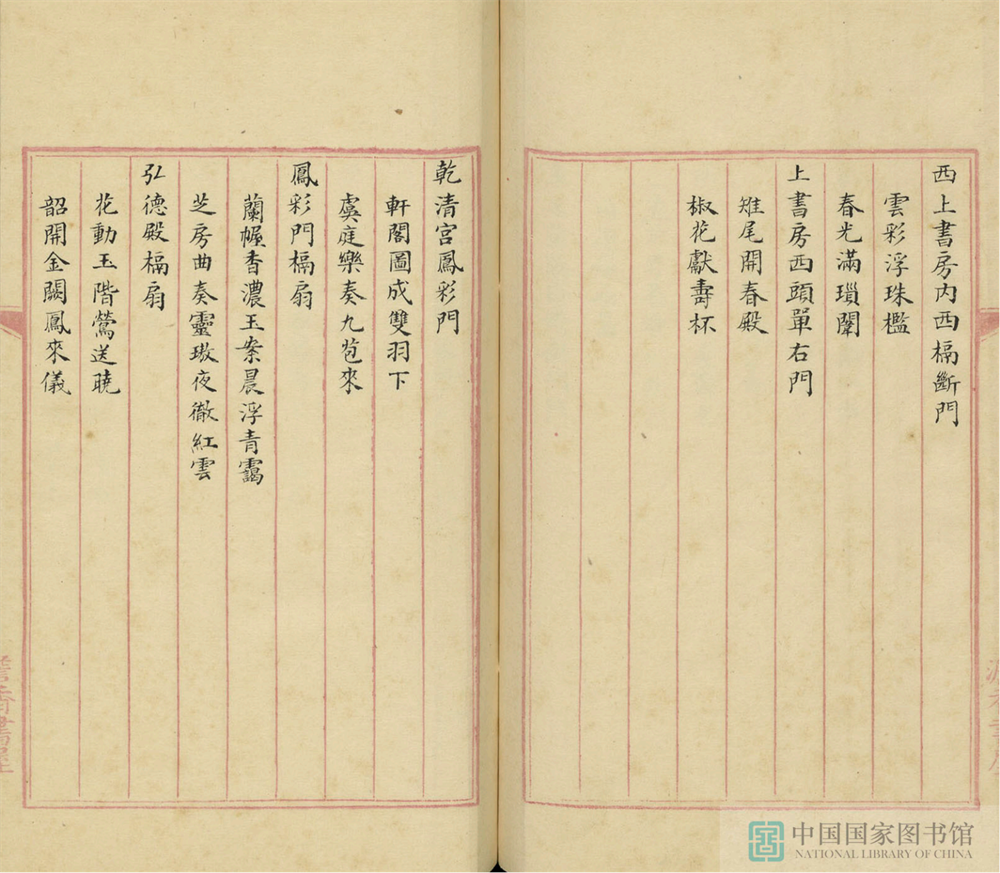 西上書房内西槅斷門
雲彩浮珠檻
春光滿瑣闈
上書房西頭單右門
雉尾開春殿
椒花獻壽杯
乾清宮鳳彩門
軒閣圖成雙羽下
虞庭樂奏九苞來
鳳彩門槅扇
蘭幄香濃玉案晨浮青靄
芝房曲奏靈璈夜徹紅雲
弘德殿槅扇
花動玉階鶯送曉
韶開金闕鳳來儀
書屋
中国国家图书馆
NATIONAL LIBRARY OF CHINA